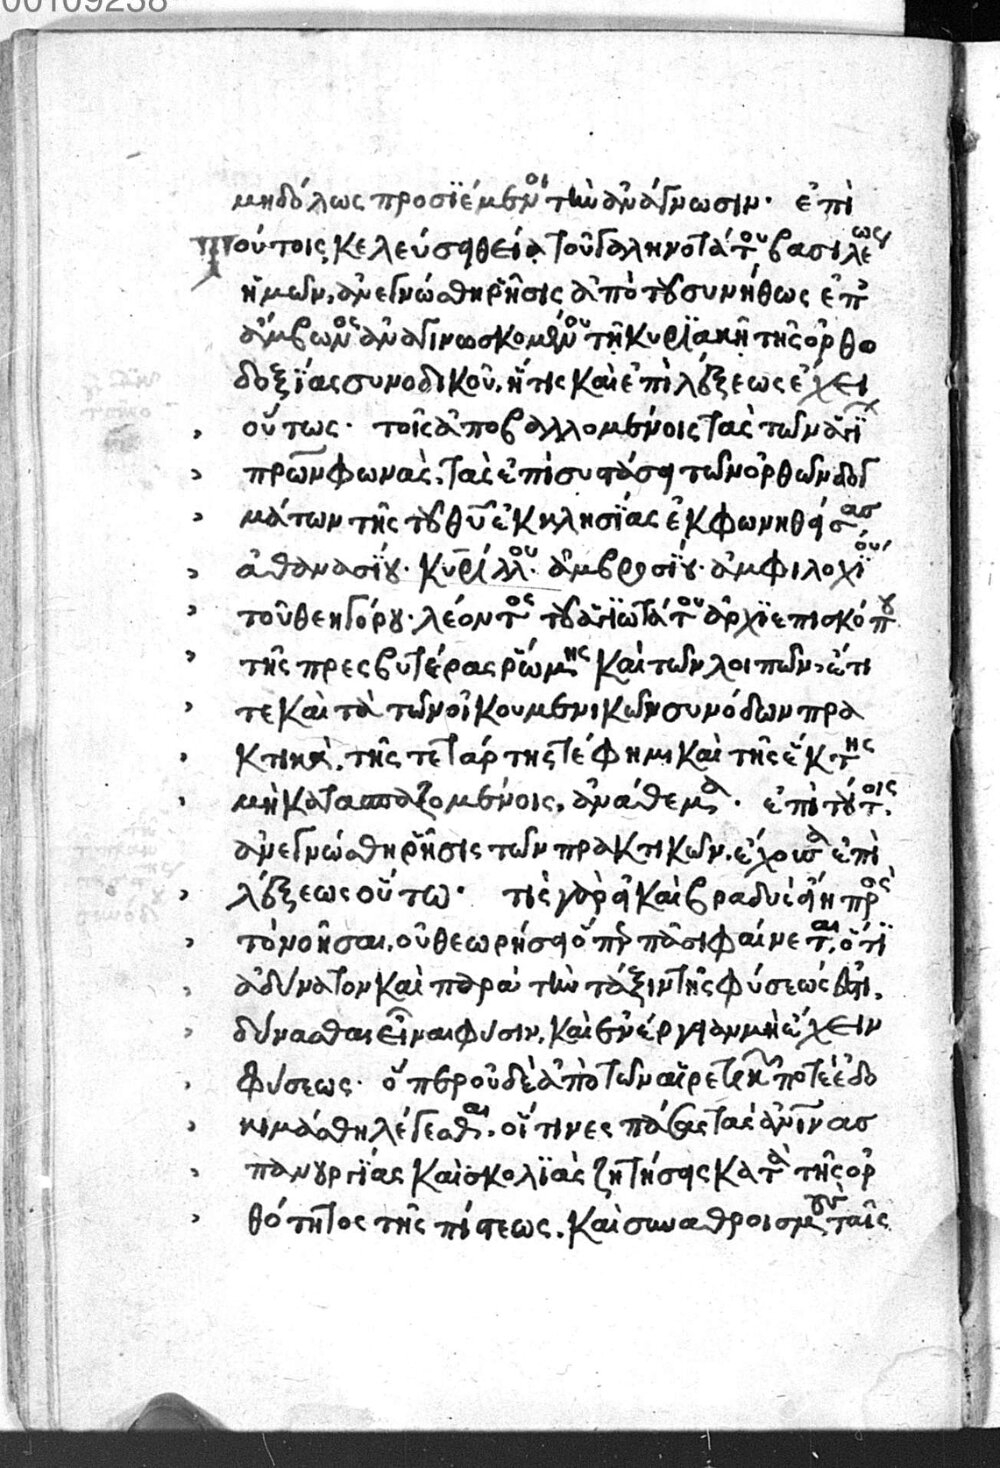 00109238
μηδόλως προσϊέμενοι τὴν ἀνάγνωσιν· ἐπὶ
τούτοις κελεύσει θείᾳ τοῦ γαληνοτάτου βασιλέως
ἡμῶν, ἀνεγνώσθη ῥῆσις ἀπὸ τοῦ συνήθως ἐπ
ἄμβωνος ἀναγινωσκομένου τῇ κυρϊακῇ τῆς ὀρθο
δοξϊας συνοδικοῦ, ἥτις καὶ ἐπὶ λέξεως ἔχει
οὕτως· τοῖς ἀποβαλλομένοις τὰς τῶν ἁγϊ
πρῶν φωνὰς, τὰς ἐπὶ συστάσει τῶν ὀρθῶν δογ
μάτων τῆς τοῦ θῦ ἐκκλησϊας ἐκφωνηθείσας,
ἀθανασϊου· κυρίλλου· ἀμβροσϊου· ἀμφιλοχϊου
τοῦ θεηγόρου· λέοντος τοῦ ἁγιωτάτου ἀρχϊεπισκόπου
τῆς πρεσβυτέρας ῥώμης καὶ τῶν λοιπῶν, ἔτι
τε καὶ τὰ τῶν οἰκουμενικῶν συνόδων πρα
κτικὰ, τῆς τετάρτης τέ φημι καὶ τῆς ἕκτης
μὴ κατασπαζομένοις, ἀνάθεμα· ἐπὶ τούτοις,
ἀνεγνώσθη ῥῆσις τῶν πρακτικῶν, ἔχουσα ἐπὶ
λέξεως οὕτω· τίς γὰρ εἰ καὶ βραδὺς εἴη πρὸς
τὸ νοῆσαι, οὐ θεωρήσει ὅπερ πᾶσι φαίνεται, ὅτϊ
ἀδύνατον καὶ παρὰ τὴν τάξιν τῆς φύσεώς ἐστι,
δύνασθαι εἶναι φύσιν, καὶ ἐνέργειαν μὴ ἔχειν
φύσεως· ὅπερ οὐδὲ ἀπὸ τῶν αἱρετικῶν ποτὲ ἐδο
κιμάσθη λέγεσθαι, οἵτινες πάσας τὰς ἀνϊνας
πανουργϊας καὶ σκολϊὰς ζητήσεις κατὰ τῆς ὀρ
θότητος τῆς πίστεως, καὶ συναθροισμοὺς ταῖς